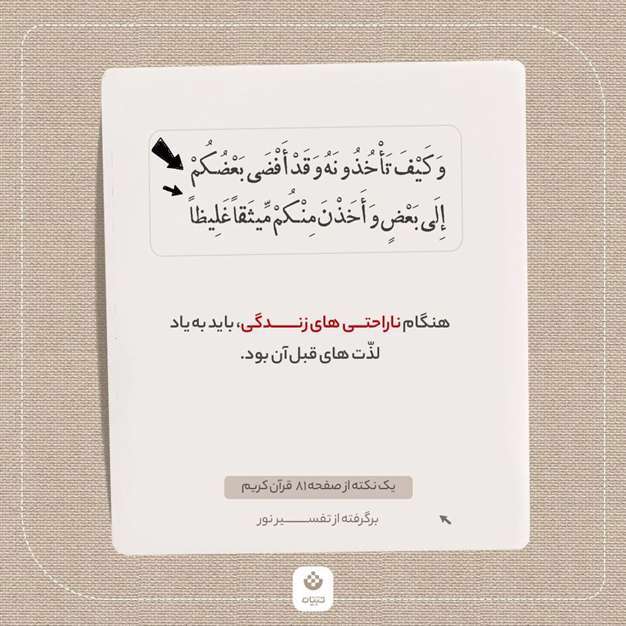 وَ كَيْفَ تَأْخُذُونَهُ وَ قَدْ أَفْضَى بَعْضُكُمْ
إِلَى بَعْضٍ وَ أَخَذْنَ مِنْكُمْ مِّيثَقاً غَلِيظاً
هنگام ناراحتی های زندگی، باید به یاد
لذّت های قبل آن بود.
یک نکته از صفحه ۸۱ قرآن کریم
برگرفته از تفسیر نور
تبیان